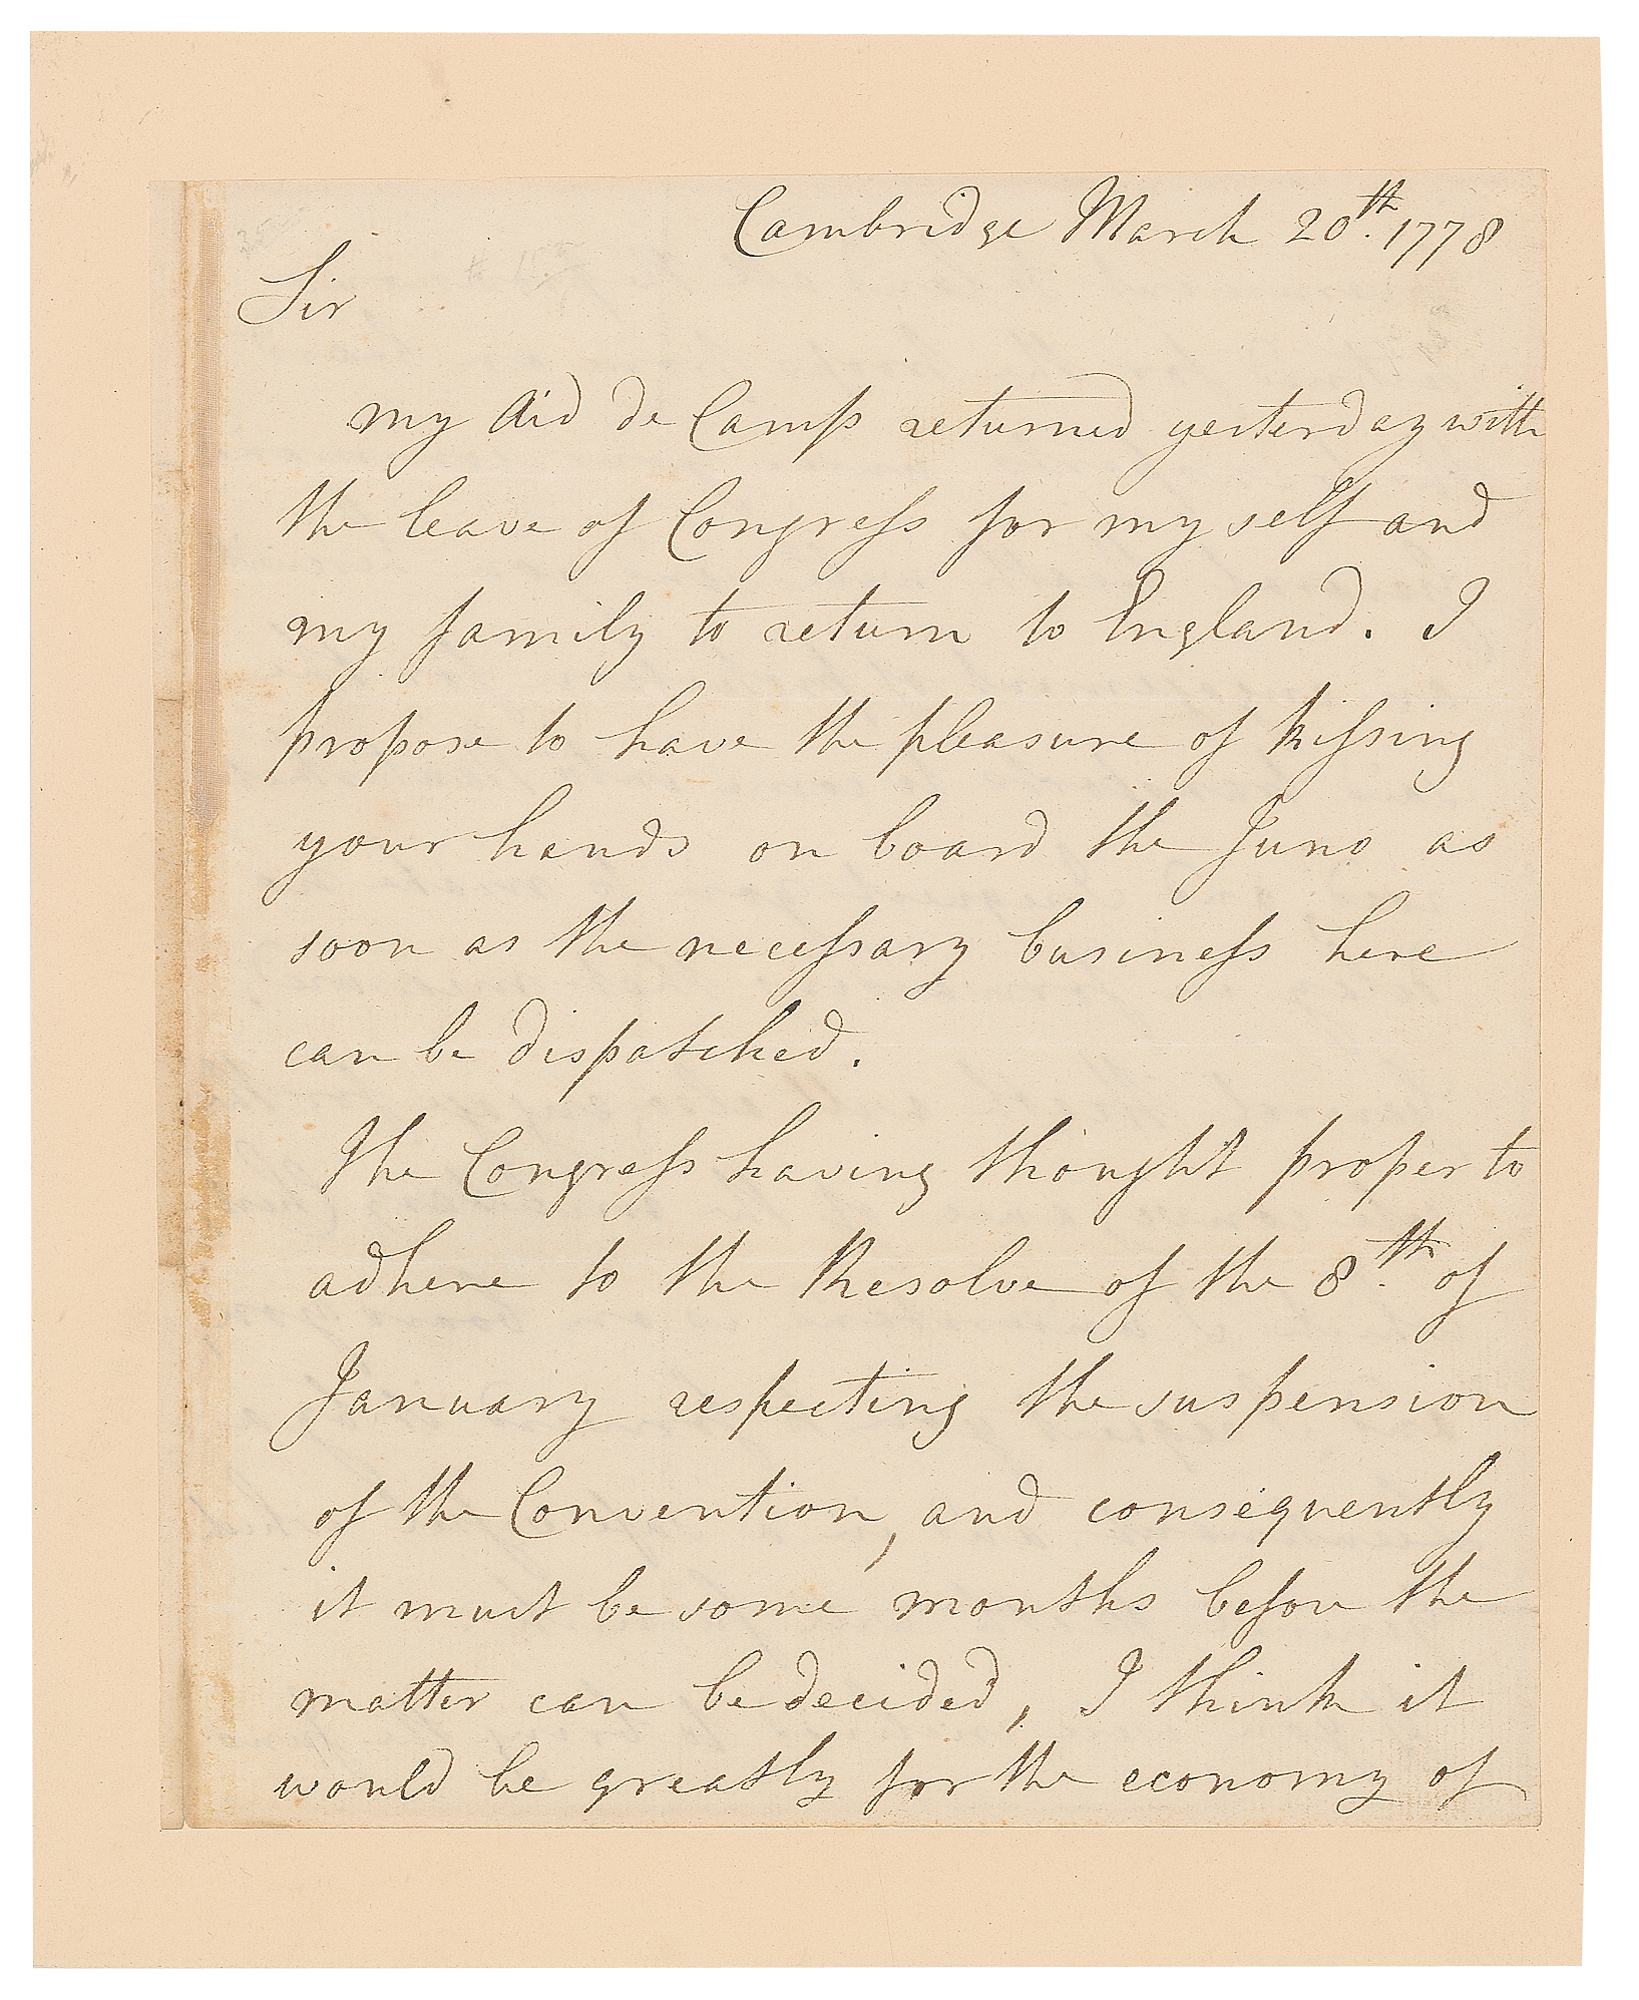 Cambridge March 20th. 1778
Sir
my Aid de Camp returned yesterday with
the leave of Congress for my self and
my family to return to England. I
propose to have the pleasure of kissing
your hands on board the Juno as
soon as the necessary business here
can be dispatched.
The Congress having thought proper to
adhere to the Resolve of the 8th. of
January respecting the suspension
of the Convention, and consequently
it must be some months before the
matter can be decided, I think it
would be greatly for the economy of